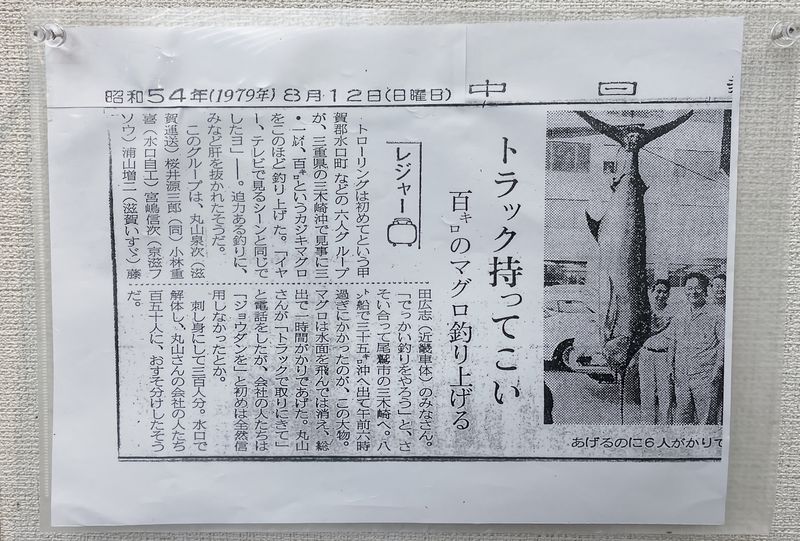 昭和54年(1979年) 8月12日(日曜日)
中日
トラック持ってこい
百㌔のマグロ釣り上げる
レジャー
トローリングは初めてという甲
賀郡水口町などの六人グループ
が、三重県の三木崎沖で見事に三
・一㍍、百㌔というカジキマグロ
をこのほど釣り上げた。「イヤ
ー、テレビで見るシーンと同じで
したヨ」――。迫力ある釣りに、
みなど肝を抜かれたそうだ。
このグループは、丸山泉次（滋
賀運送）桜井源三郎（同）小林重
喜（水口自工）宮嶋信次（京滋フ
ソウ）浦山増二（滋賀いすゞ）藤
田広志（近畿車体）のみなさん。
「でっかい釣りをやろう」と、さ
そい合って尾鷲市の三木崎へ。八
㌧船で三十五㌔沖へ出て午前六時
過ぎにかかったのが、この大物。
マグロは水面を飛んでは消え、総
出で一時間がかりであげた。丸山
さんが「トラックで取りにきて」
と電話をしたが、会社の人たちは
「ジョウダンを」と初めは全然信
用しなかったとか。
刺し身にして三百人分。水口で
解体し、丸山さんの会社の人たち
百五十人に、おすそ分けしたそう
だ。
あげるのに6人がかりで